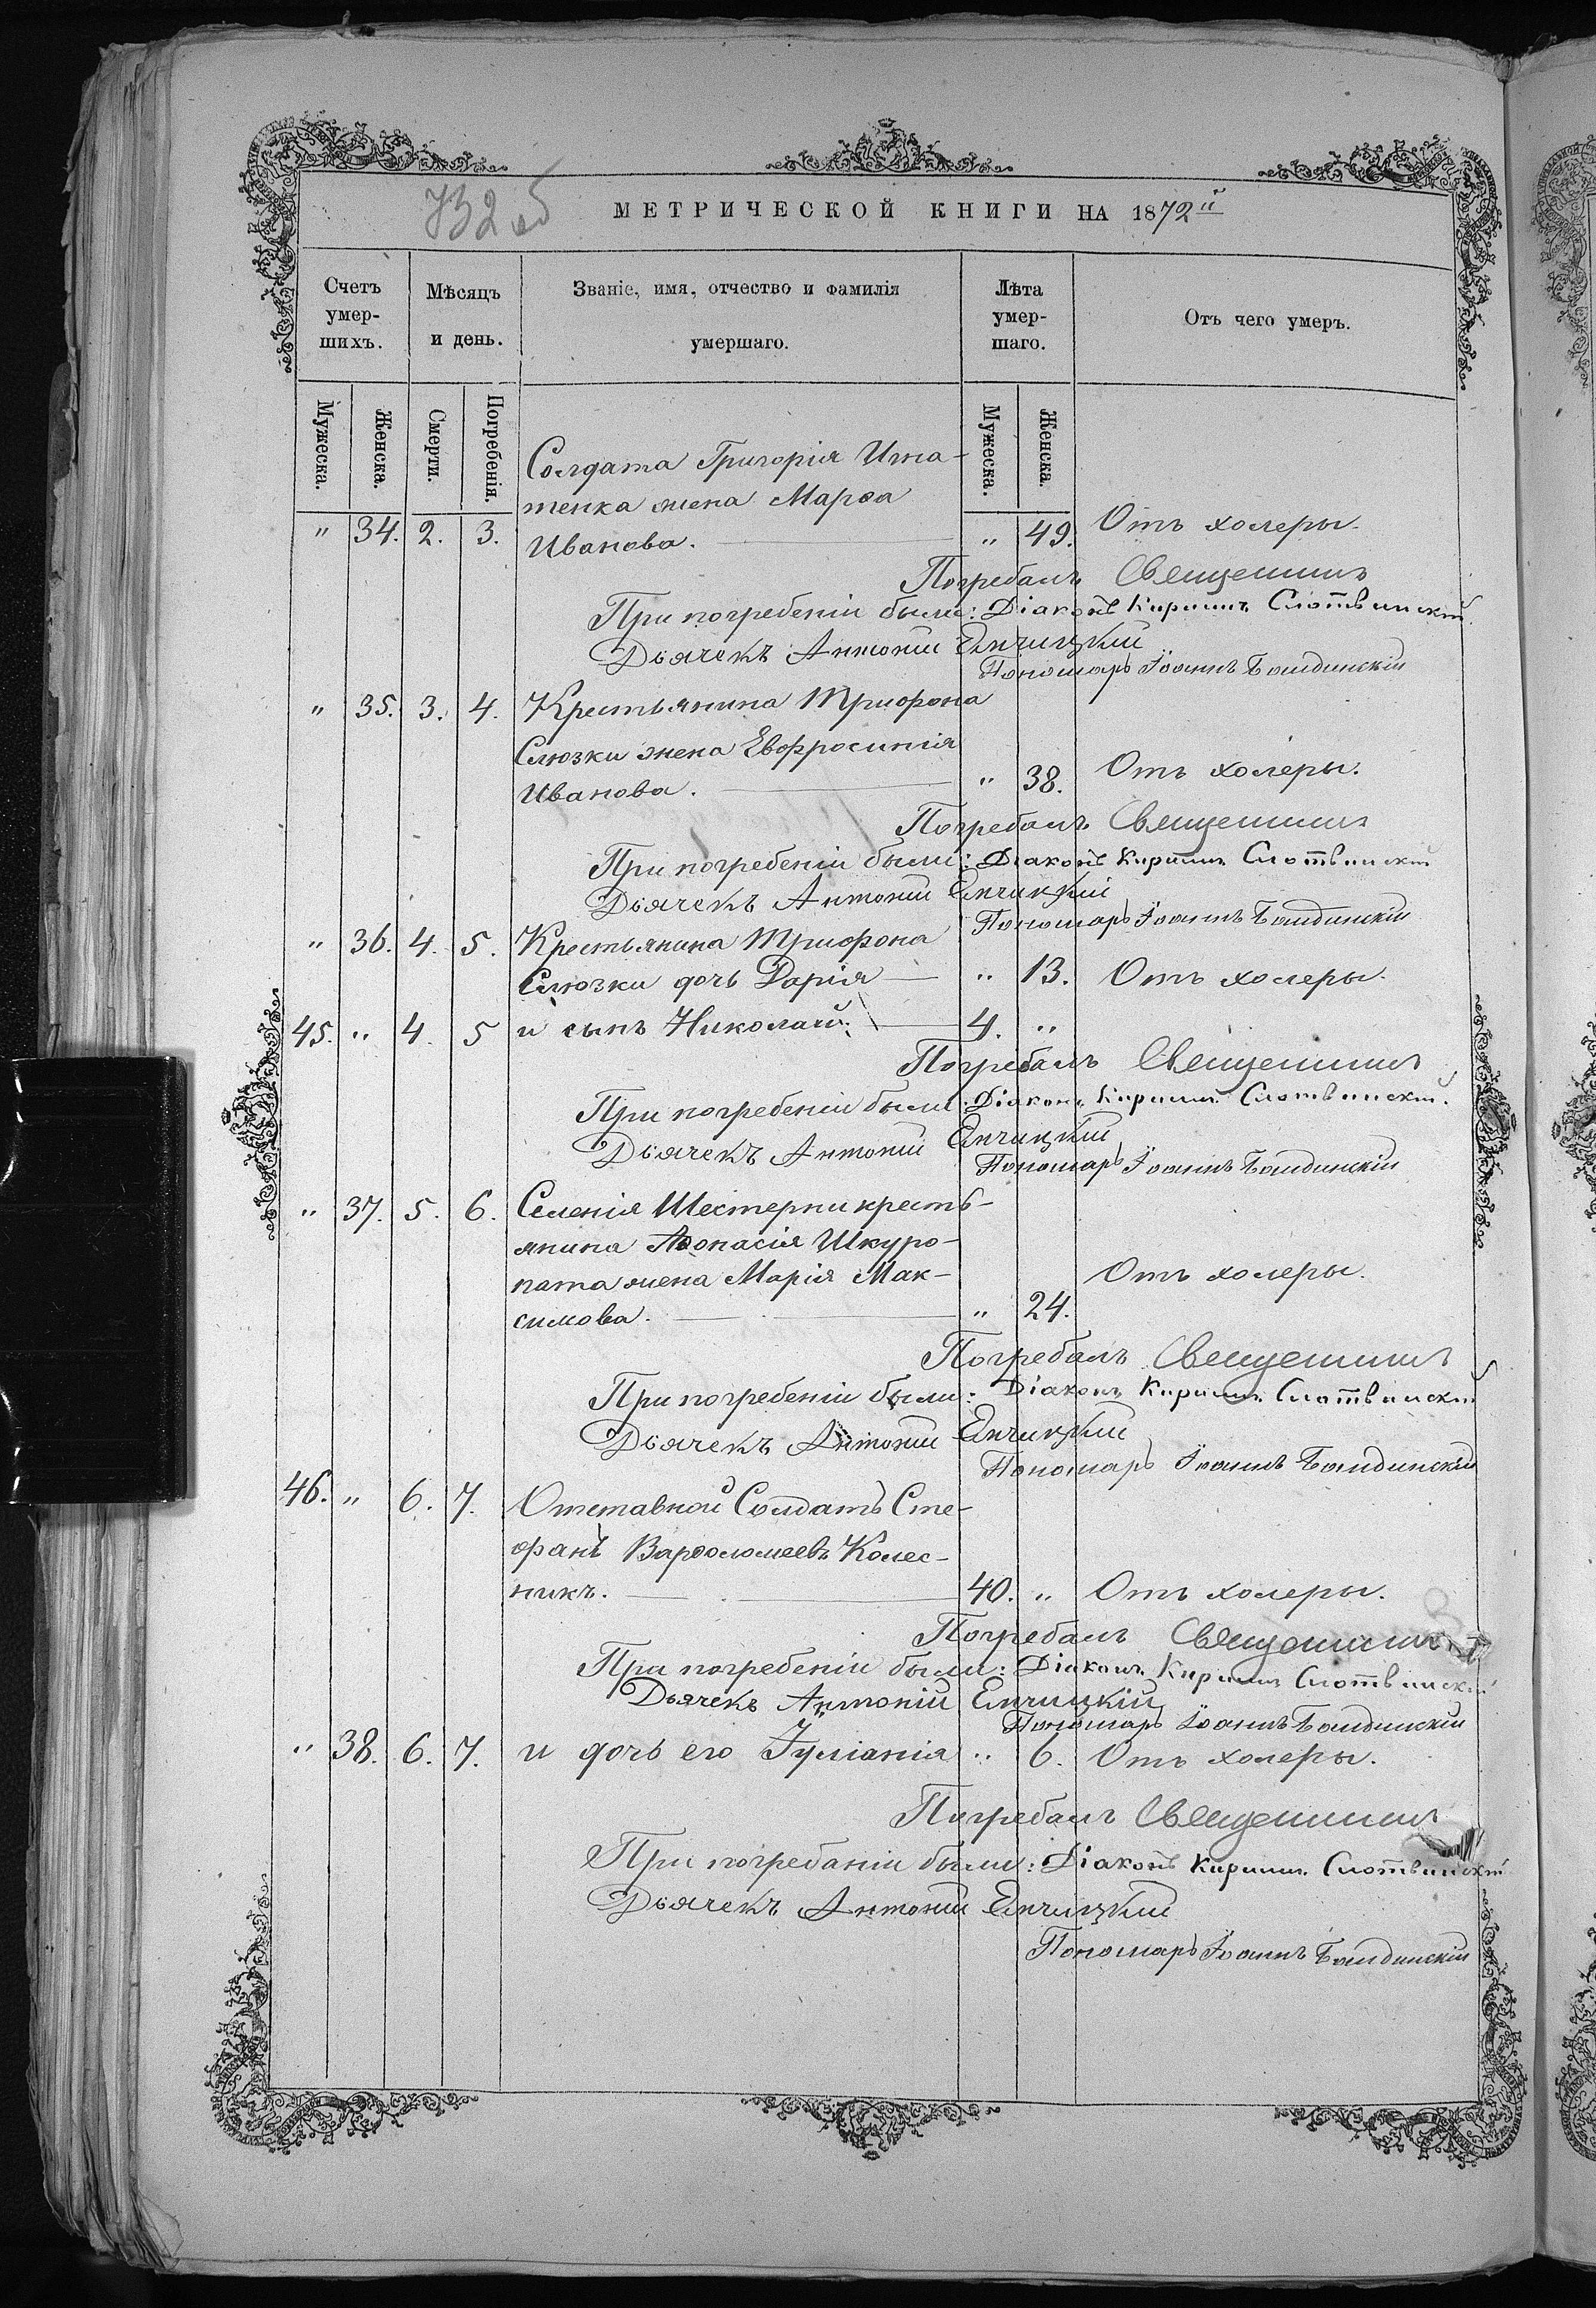 732 об
МЕТРИЧЕСКОЙ КНИГИ НА 1872й
Счетъ умер-шихъ.
Мѣсяцъ и день.
Званіе, имя, отчество и фамилія умершаго.
Лѣта умер-шаго.
Отъ чего умеръ.
Мужеска. Женска. Смерти. Погребенія. Мужеска. Женска.
Солдата Григорія Игна-
тенка жена Марѳа
" 34. 2. 3. Иванова. " 49. Отъ холеры.
Погребалъ Священникъ
При погребеніи были: Діаконъ Кириллъ Слотвинскій.
Дьячекъ Антоній Енчицкій
Пономарь Іоаннъ
" 35. 3. 4. Крестьянина Трифона
Слюзки жена Евфросинія
Иванова. " 38. Отъ холеры.
Погребалъ Священникъ
При погребеніи были: Діаконъ Кириллъ Слотвинскій
Дьячекъ Антоній Енчицкій
Пономарь Іоаннъ
" 36. 4. 5. Крестьянина Трифона
Слюзки дочь Дарія " 13. Отъ холеры.
45. " 4. 5 и сынъ Николай. 4. "
Погребалъ Священникъ
При погребеніи были: Діаконъ Кириллъ Слотвинскій.
Дьячекъ Антоній Енчицкій
Пономарь Іоаннъ
" 37. 5. 6. Селенія Шестерни кресть-
янина Аѳонасія Шкуро-
пата жена Марія Мак- Отъ холеры.
симова. " 24.
Погребалъ Священникъ
При погребеніи были: Діаконъ Кириллъ Слотвинскій
Дьячекъ Антоній Енчицкій
Пономарь Іоаннъ
46. " 6. 7. Отставной Солдатъ Сте-
фанъ Варѳоломеевъ Колес-
никъ. 40. " Отъ холеры.
Погребалъ Священникъ
При погребеніи были: Діаконъ Кириллъ Слотвинскій
Дьячекъ Антоній Енчицкій
Пономарь Іоаннъ
" 38. 6. 7. и дочь его Іуліанія " 6. Отъ холеры.
Погребалъ Священникъ
При погребаніи были: Діаконъ Кириллъ Слотвинскій
Дьячекъ Антоній Енчицкій
Пономарь Іоаннъ